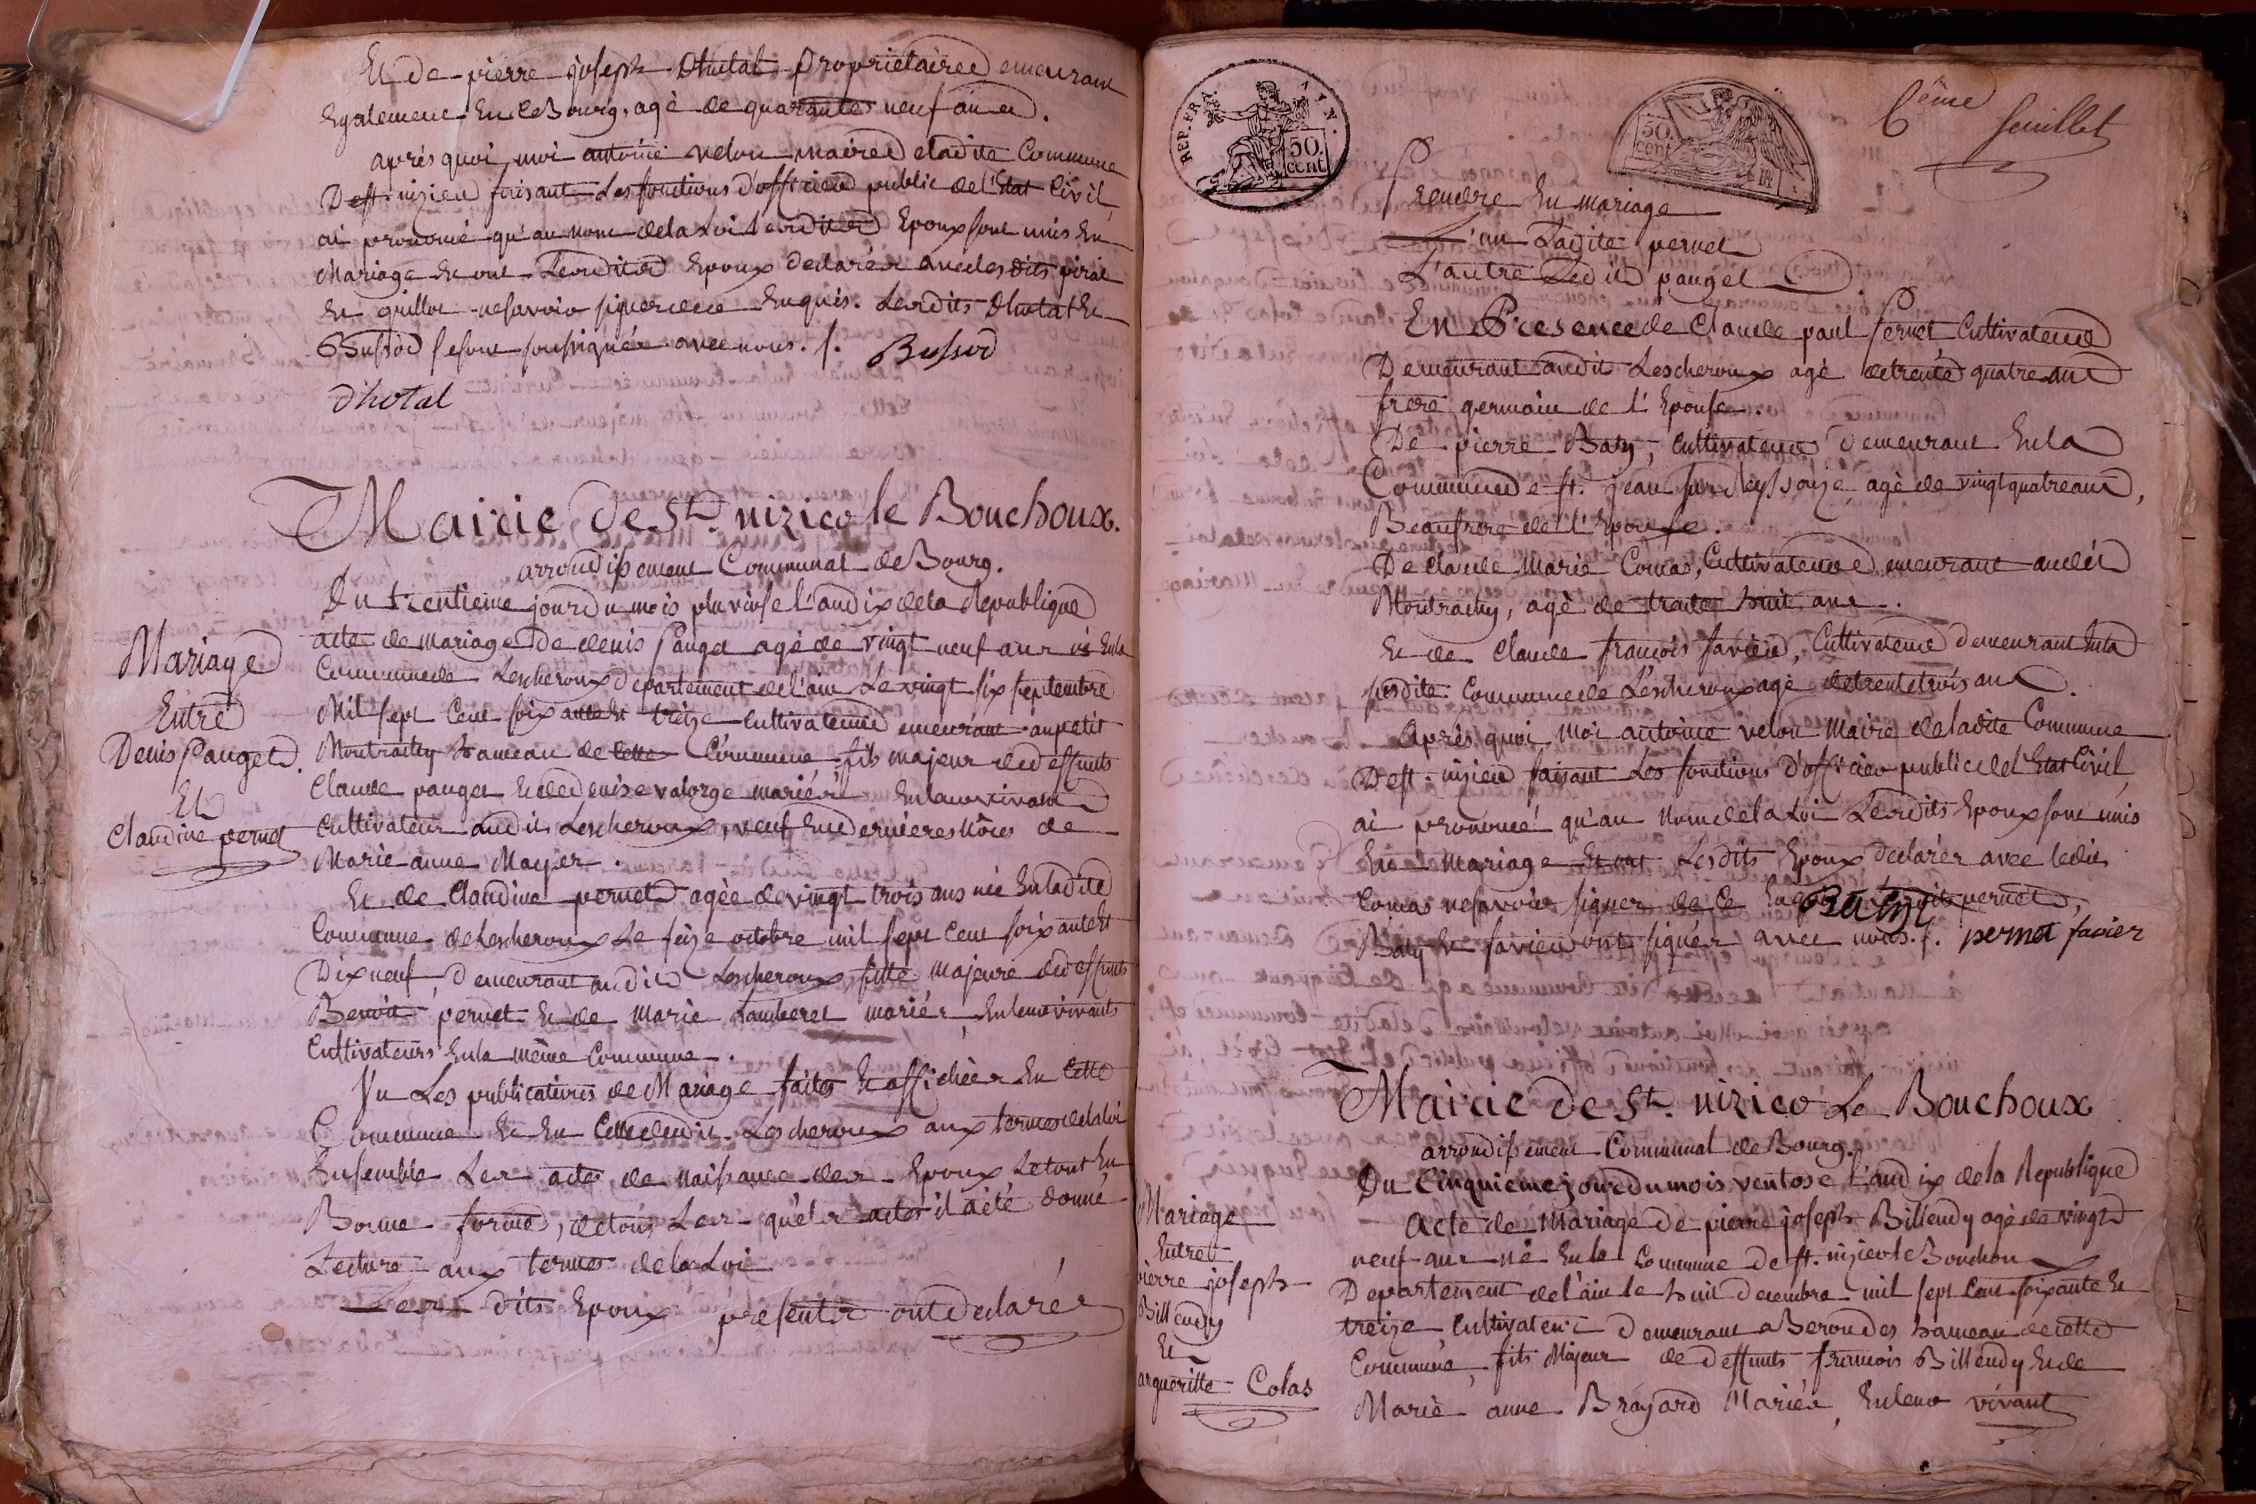 Et de pierre joseph Dhutal proprietaire demeurant
Egalement En ce Bourg, agè de quarante neuf ans.
après quoi, moi antoine velon maire de ladite Commune
De st. nizier faisant Les fonctions d'officier public de l'Etat Civil,
ai prononcé qu'au nom de la Loi Lesdites Epoux sont unis En
Mariage Et ont Lesdites Epoux declarés avec les dits
Et grillot ne savoir signer de ce Enquis. Lesdits Dhutal Et
Bussod se sont soussignés avec nous. /. Bussod
d'hotal
Mairie de St. nizier le Bouchoux.
arrondissement Communal de Bourg.
Du trentieme jour du mois pluviose l'an dix de la Republique
acte de mariage De denis Pauget agé de vingt neuf ans né En la
Commune de Lescheroux departement de l'ain Le vingt six septembre
Mil sept Cent soixante Et treize Cultivateur demeurant au petit
Montrachy hameau de Cette Commune fils majeur de deffunts
Claude pauget Et de denise valorge mariés En leur vivant
Cultivateurs audit Lescheroux, veuf En dernieres Nôces de
Marie anne Mayer.
Et de Claudine pernet agèe de vingt trois ans née En ladite
Commune de Lescheroux Le seize octobre mil sept Cent soixante Et
Dix neuf, demeurant audit Lescheroux, fille majeure de deffunts
Benoit pernet Et de Marie Lamberet mariés En leur vivants
Cultivateurs En la même Commune.
Vu Les publications de Mariage faites Et affichées En Cette
Commune Et En Celle dudit Lescheroux aux termes de la loi
Ensemble Les acte de naissance des Epoux Le tout En
Bonne forme, de tous Les quels actes il a été donné
Lecture aux termes de la Loi
Les dits Epoux presents ont declarés
Mariage
Entre
Denis Pauget
Et
Claudine pernet
6ême feuillet
REP. FRA. AYN.
50. cent
50. cent
Prendre En mariage
L'un Ladite pernet
L'autre Ledit pauget
En Presence de Claude paul Pernet Cultivateur
Demeurant audit Lescheroux agè de trente quatre ans
frere germain de l'Epouse.
De pierre Baty, Cultivateur demeurant En la
Commune de st. jean sur Reyssouze agè de vingt quatre ans,
Beaufrere de l'Epouse.
De Claude Marie Comas, Cultivateur demeurant audit
Montrachy, agè de trente huit ans.
Et de Claude françois favier, Cultivateur demeurant En la
susdite Commune de Lescheroux agè de trente trois ans.
Après quoi, Moi antoine velon Maire de ladite Commune
De st. nizier faisant Les fonctions d'officier public de l'Etat Civil,
ai prononcé qu'au Nom de la Loi Lesdits Epoux sont unis
En Mariage Et ont Lesdits Epoux declarés avec ledit
Comas ne savoir signer de Ce Enquis pernet,
Baty Et favier ont signés avec nous. /. pernet favier
Baty
Mairie de St. nizier Le Bouchoux
arrondissement Communal de Bourg.
Du Cinquieme jour du mois ventose l'an dix de la Republique
Acte de Mariage De pierre joseph Billendy agè de vingt
neuf ans né En la Commune De st. nizier le Bouchou
Departement de l'ain le huit decembre mil sept Cent soixante Et
treize Cultivateur Demeurant a Beroudes hameau de cette
Commune, fils Majeur de deffunts françois Billendy Et de
Marie anne Brayard Mariés, En leur vivant
Mariage
Entre
pierre joseph
Billendy
Et
argueritte Colas